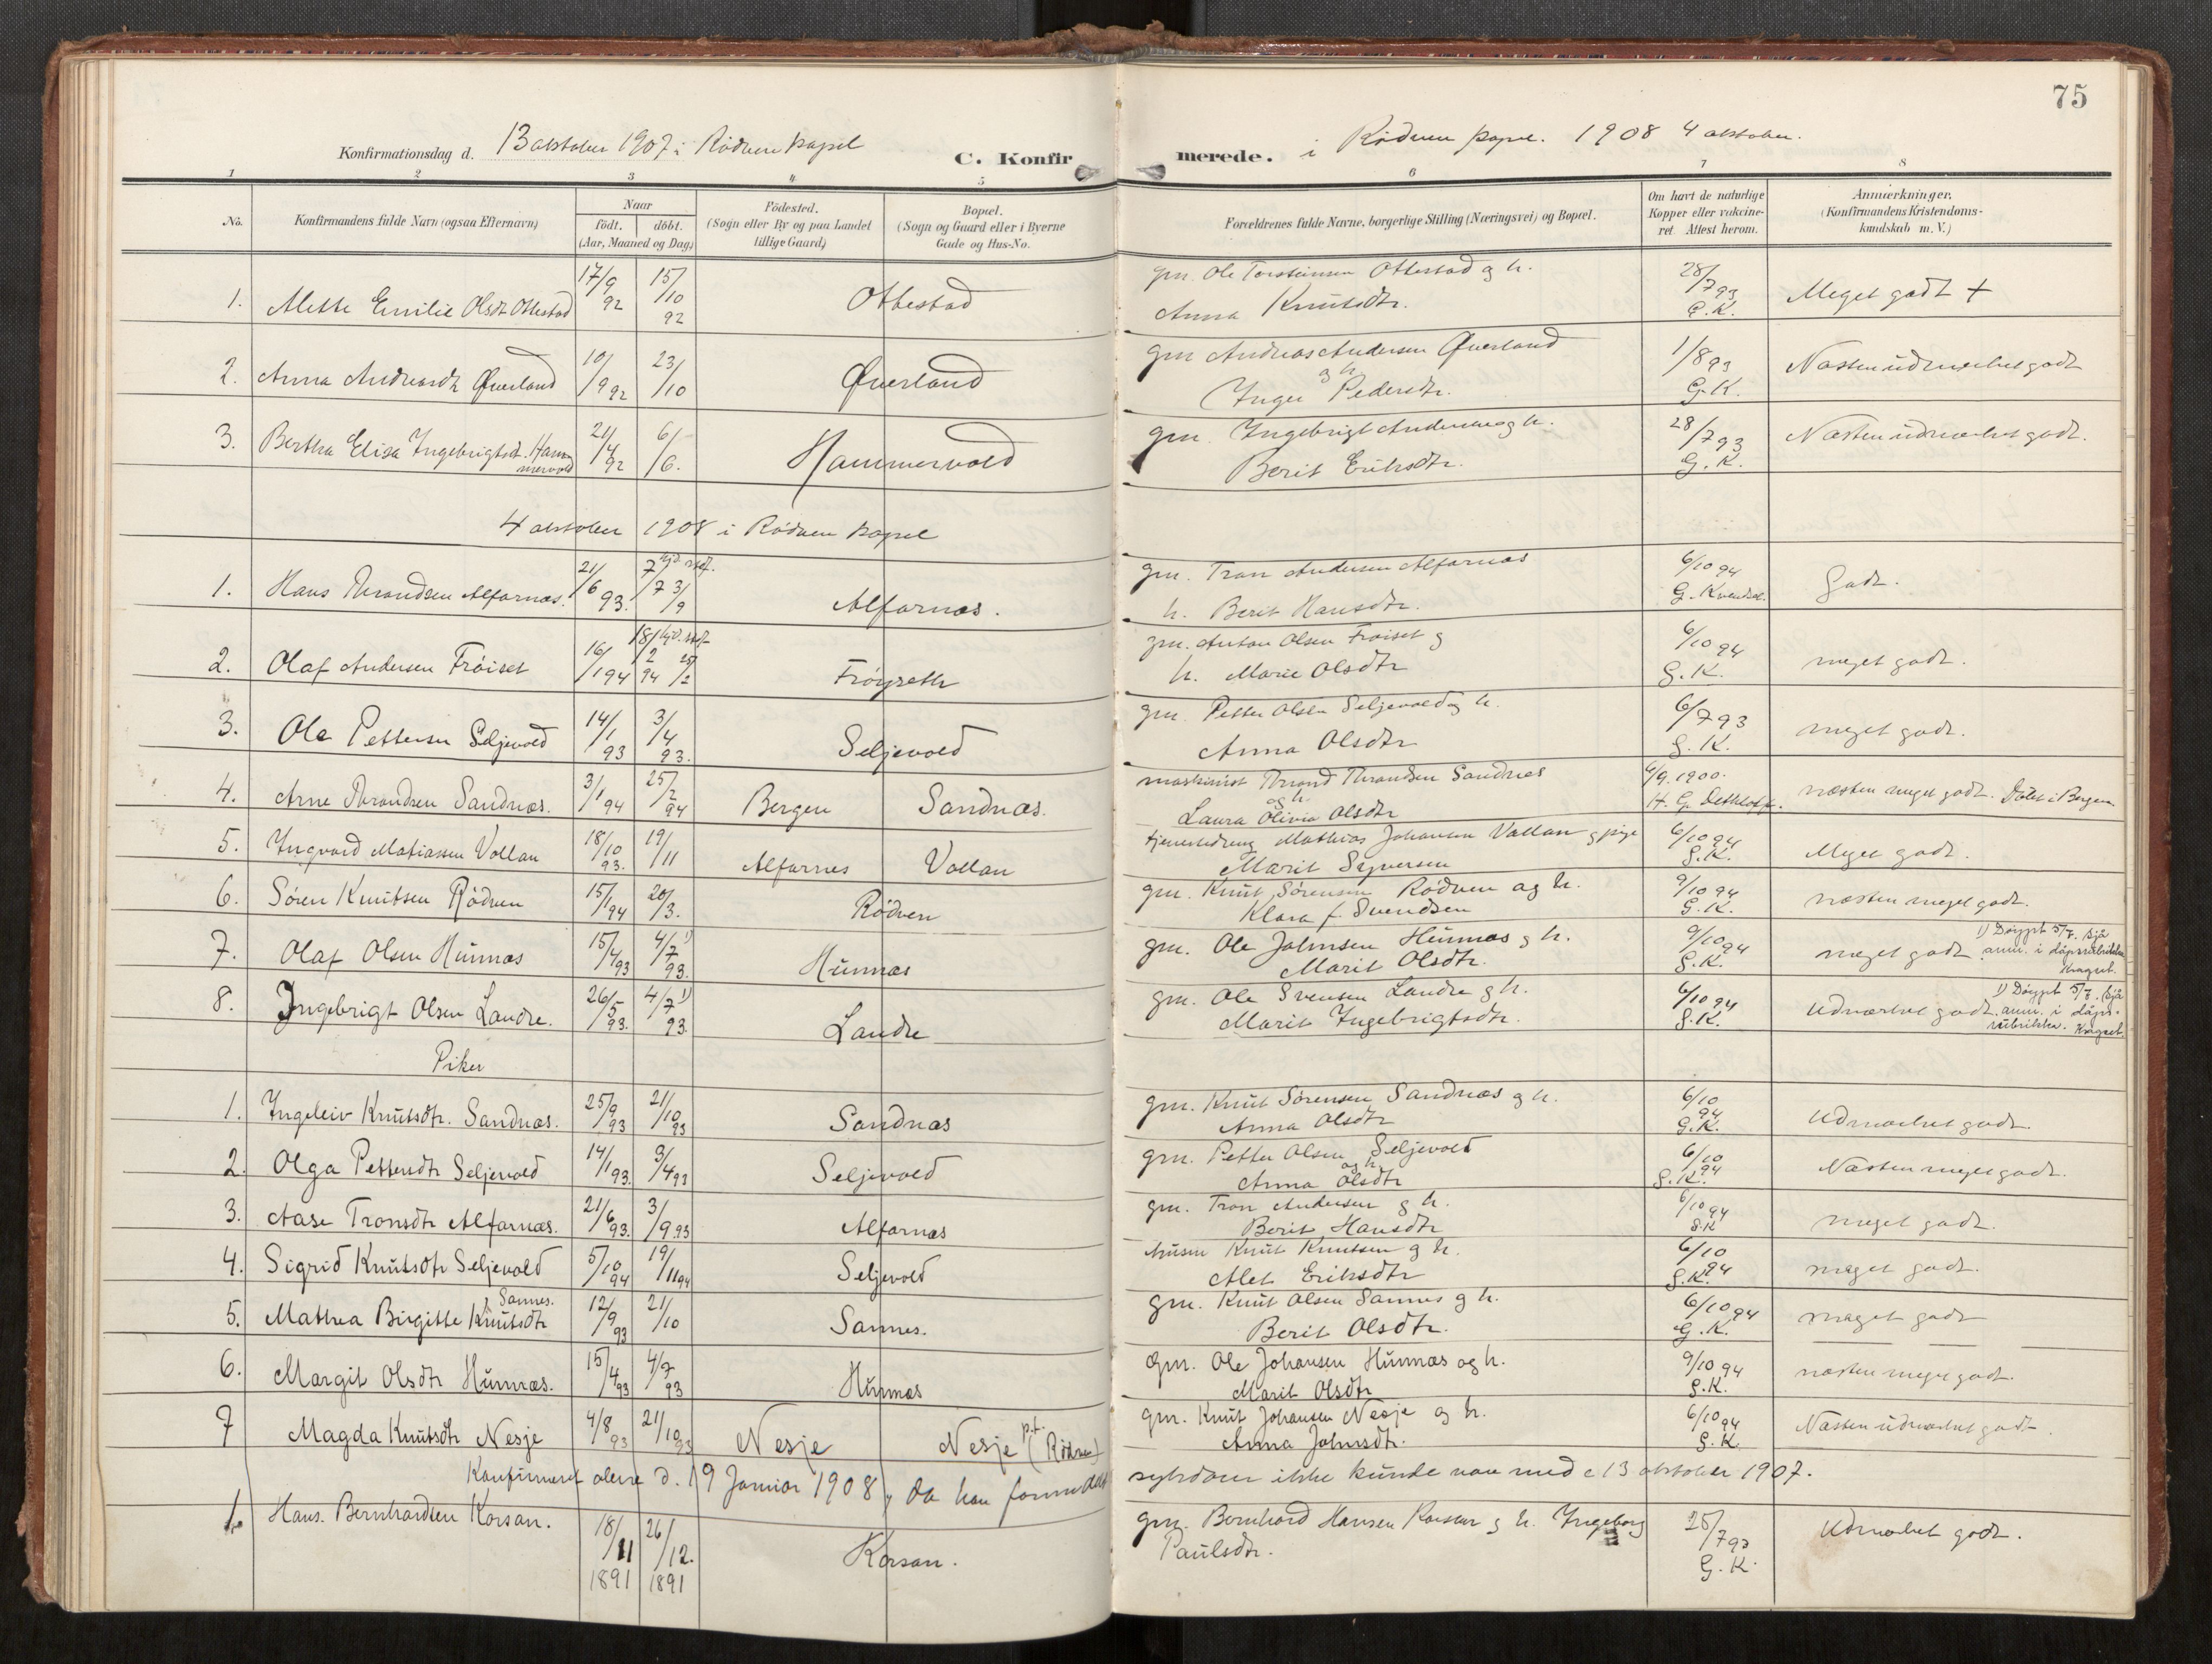 75
Konfirmationsdag d. 13 oktober 1907 i Rødven kapel
C. Konfirmerede. i Rødven kapel. 1908 4 oktober.
1 2 3 4 5 6 7 8
No. Konfirmandens fulde Navn (ogsaa Efternavn) Naar født. døbt. (Aar, Maaned og Dag) Fødested. (Sogn eller By og paa Landet tillige Gaard) Bopæl. (Sogn og Gaard eller i Byerne Gade og Hus-No. Forældrenes fulde Navne, borgerlige Stilling (Næringsvei) og Bopæl. Om havt de naturlige Kopper eller vakcineret. Attest herom. Anmærkninger. (Konfirmandens Kristendomskundskab m. V.)
1. Mette Emilie Olsdt Ottestad 17/9 92 15/10 92 Ottestad gm. Ole Torsteinsen Ottestad og h. Anna Knutsdtr. 28/7 93 G.K. Meget godt +
2. Anna Andreasdt Øverland 10/9 92 23/10 Øverland gm Andreas Andersen Øverland og h. Inger Pedersdtr. 1/8 93 G.K. Næsten udmærket godt
3. Bertha Elisa Ingebrigtsdt. Hammervold 21/4 92 6/6. Hammervold gm. Ingebrigt Andersen og h. Berit Eriksdtr. 28/7 93 G.K. Næsten udmærket godt.
4 oktober 1908 i Rødven kapel
1. Hans Thrandsen Alfarnæs. 21/6 93. 7/7 3/9 Alfarnæs. gm. Tron Andersen Alfarnæs h. Berit Hansdtr. 6/10 94 G. Godt.
2. Olaf Andersen Frøiset 16/1 94 18/2 94 Frøyseth gm. Anton Olsen Frøiset og h. Marie Olsdtr 6/10 94 G.K. meget godt.
3. Ole Pettersen Seljevold 14/1 93 3/4 93. Seljevold gm. Petter Olsen Seljevold og h. Anna Olsdtr 6/7 93 G.K. meget godt.
4. Arne Thrandsen Sandnæs. 3/1 94 25/2 94 Bergen Sandnæs. maskinist Thrand Thrandsen Sandnes og h. Laura Olivia Olsdtr 4/9. 1900. H. G. Dethloff. næsten meget godt. Døbt i Bergen
5. Ingvard Matiassen Vollan 18/10 93. 19/11 Alfarnes Vollan tjenestedreng Mathias Johansen Vollan og pige Marit Syversen 6/10 94 G.K. Meget godt.
6. Søren Knutsen Rødven 15/1 94 20/3. Rødven gm. Knut Sørensen Rødven og h. Klara f. Svendsen 9/10 94 G.K. næsten meget godt.
7. Olaf Olsen Hunnæs 15/4 93 4/7 1) 93. Hunnæs gm. Ole Johnsen Hunnæs og h. Marit Olsdtr. 9/10 94 G.K. meget godt 1) Døypt 5/7. Sjå anm. i dåpsrubrikka Kragset.
8. Ingebrigt Olsen Landre. 26/5 93. 4/7 1) 93. Landre gm. Ole Svensen Landre og h. Marit Ingebrigtsdtr. 6/10 94 G.K. Udmærket godt. 1) Døypt 5/7. Sjå anm. i dåpsrubrikka. Kragset.
Piker
1. Ingeleiv Knutsdtr. Sandnæs. 25/9 93 21/10 93 Sandnæs gm. Knut Sørensen Sandnæs og h. Anna Olsdtr 6/10 94 G.K. Udmærket godt.
2. Olga Pettersdtr Seljevold 14/1 93. 3/4 93 Seljevold gm. Petter Olsen Seljevold og h. Anna Olsdtr 6/10 94 G.K. Næsten meget godt.
3. Aase Tronsdtr Alfarnæs. 21/6 93. 3/9. 93 Alfarnæs gm. Tron Andersen og h. Berit Hansdtr 6/10 94 G.K meget godt.
4. Sigrid Knutsdtr Seljevold 5/10 94 19/11 94 Seljevold husm Knut Knutsen og h. Alet Eriksdtr 6/10 94 G.K. meget godt.
5. Mathea Birgitte Knutsdtr Sannes. 12/9 93 21/10 Sannes. gm. Knut Olsen Sannes og h. Berit Olsdtr. 6/10 94 G.K. meget godt
6. Margit Olsdtr Hunnæs. 15/4 93 4/7 93 Hunnæs Gm. Ole Johansen Hunnæs og h. Marit Olsdtr 9/10 94 G.K. næsten meget godt.
7 Magda Knutsdtr Nesje 4/8 93 21/10 93 Nesje Nesje p.t. (Rødven) gm. Knut Johansen Nesje og h. Anna Johnsdtr. 6/10 94 G.K. Næsten udmærket godt.
Konfirmeret alene d. 19 Januar 1908, da han formedelst sykdom ikke kunde være med 13 oktober 1907.
1. Hans. Bernhardsen Korsan. 18/11 1891 26/12. 1891 Korsan. gm. Bernhard Hansen Korsan og h. Ingeborg Paulsdtr. 25/7 93 G.K. Udmærket godt.